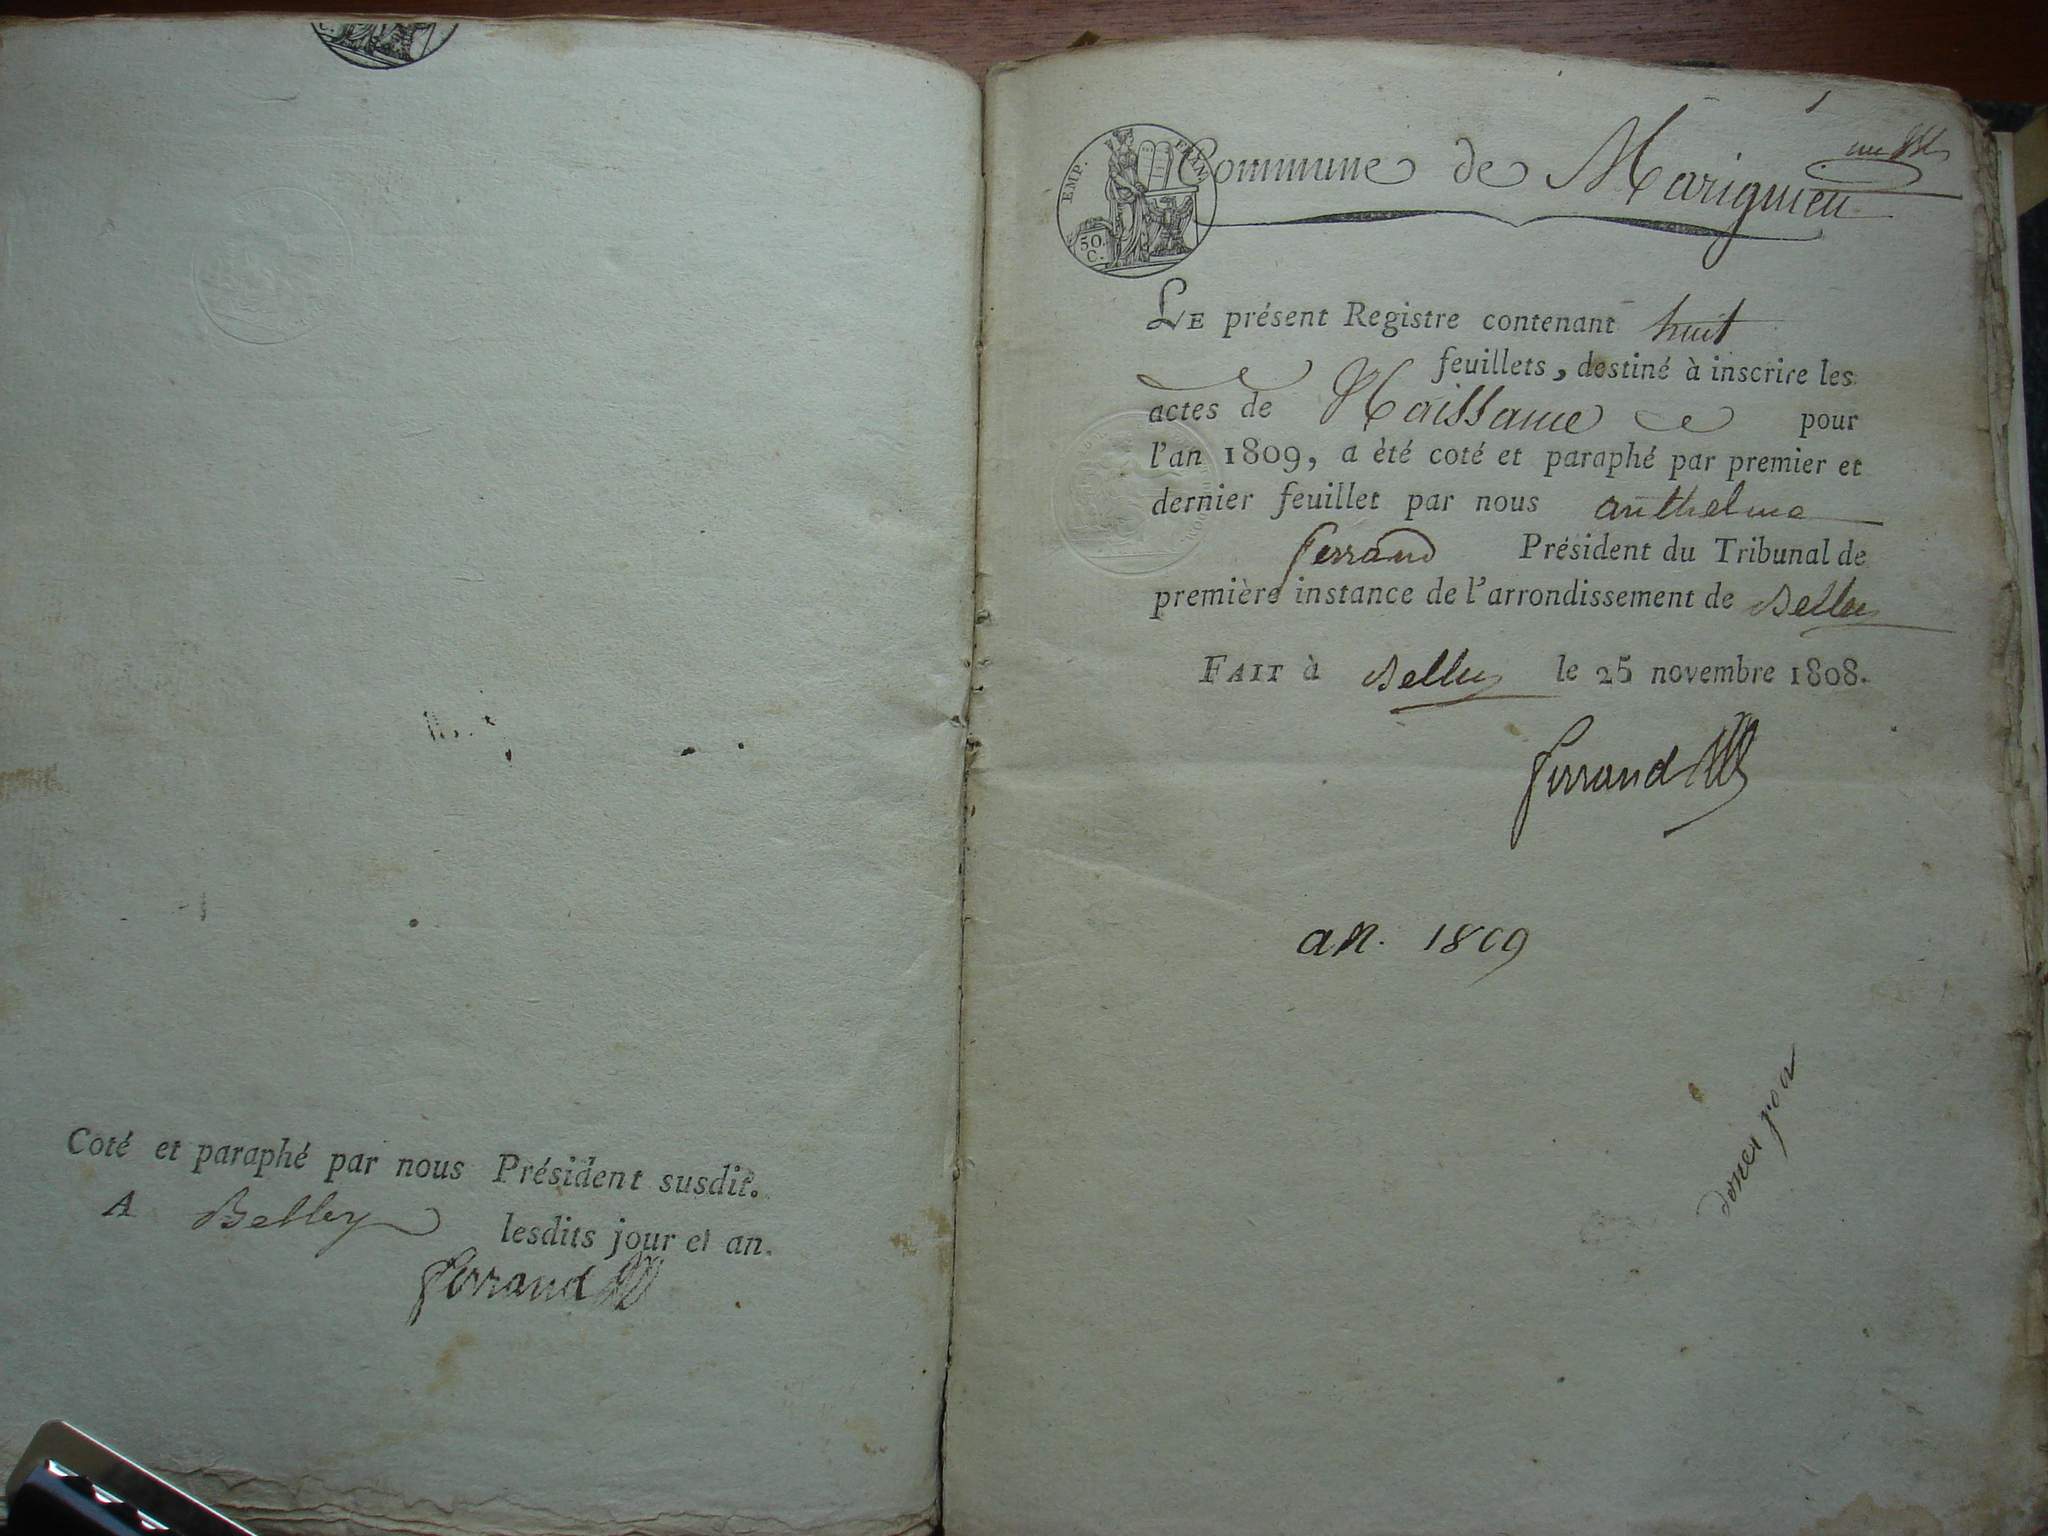 Coté et paraphé par nous Président susdit.
A Belley lesdits jour et an.
Ferrand
1
Commune de Marignieu
EMP. FRAN.
50.
C.
LE présent Registre contenant huit
feuillets, destiné à inscrire les
actes de Naissance pour
l'an 1809, a èté coté et paraphé par premier et
dernier feuillet par nous anthelme
ferrand Président du Tribunal de
première instance de l'arrondissement de Belley
FAIT à Belley le 25 novembre 1808.
ferrand
an. 1809